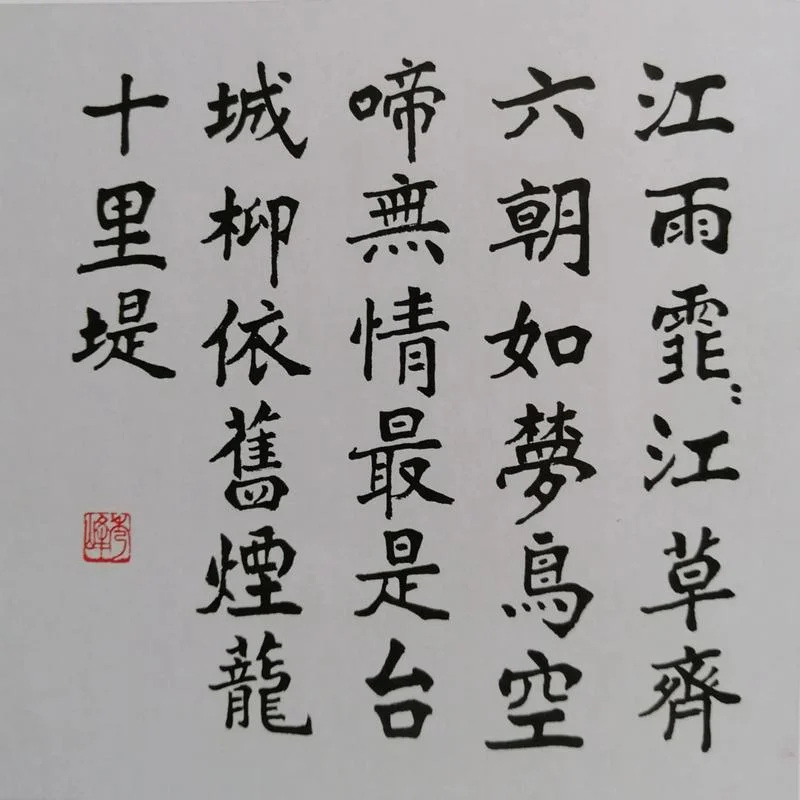 江雨霏〻江草齊
六朝如夢鳥空
啼無情最是台
城柳依舊煙蘢
十里堤